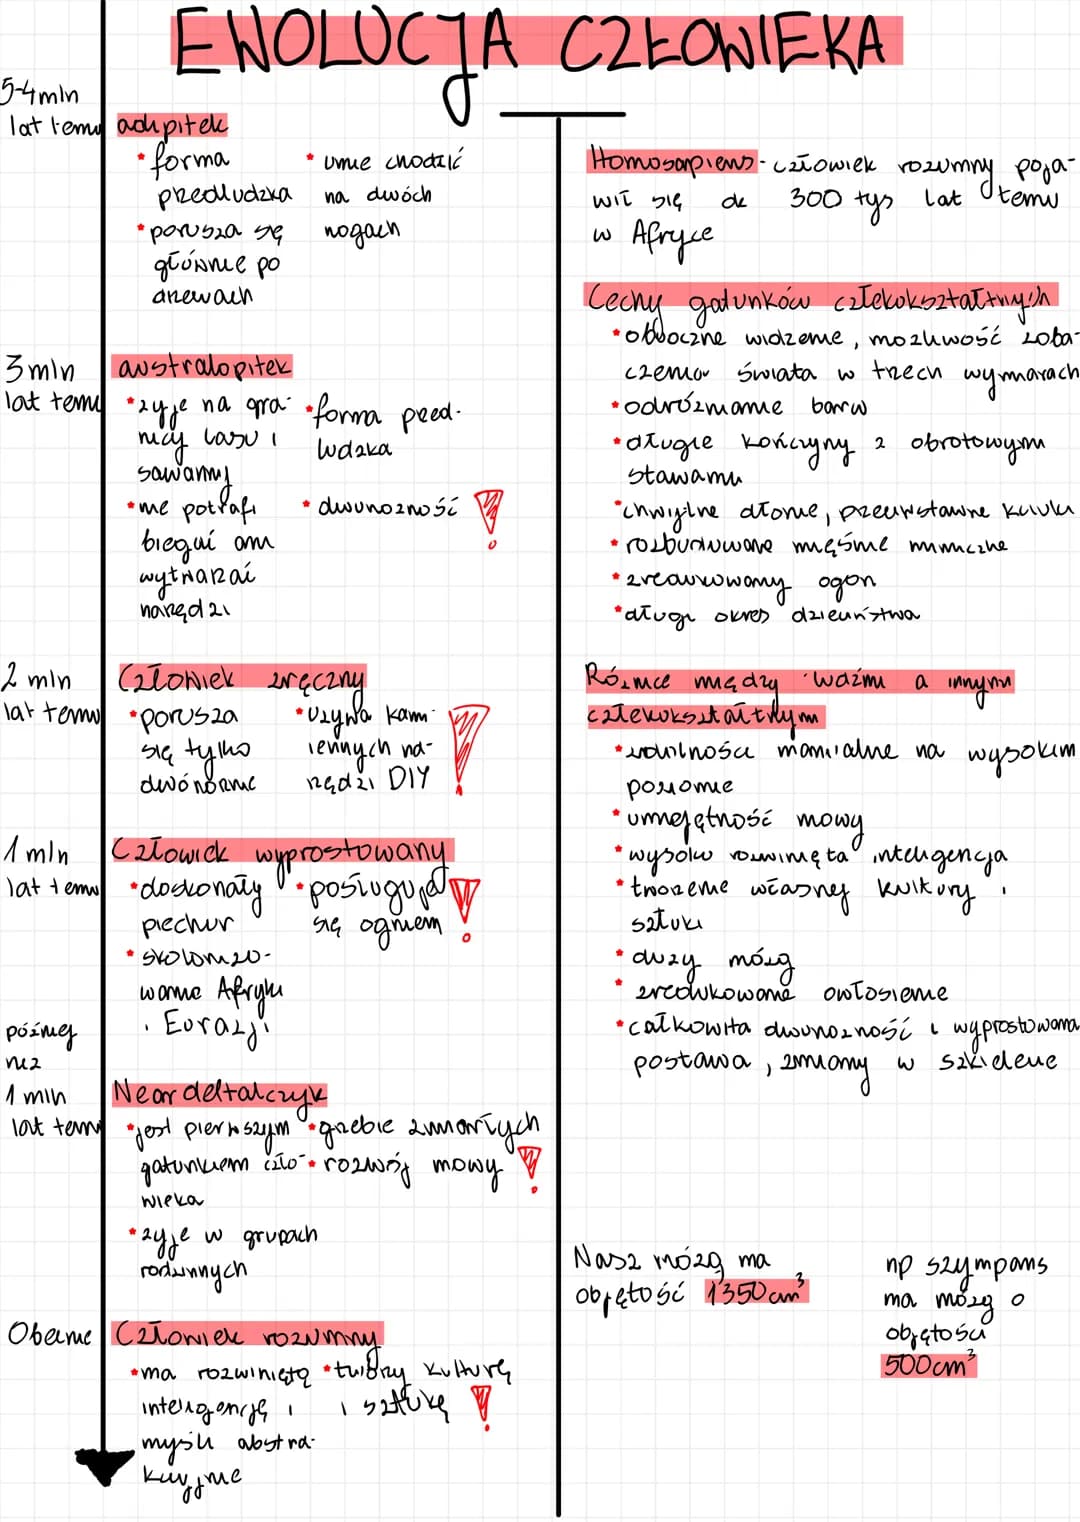 EWOLUCJA CZŁOWIEKA
5-4 mln
lat temu
adipitek
• forma
przedludzka
• porusza się
głównie po
drzewach
• umie chodzić
na dwóch
nogach
3 mln
lat temu
australopitek
• żyje na gra-
nicy lasu i
sawanny
• nie potrafi
biegać ani
wytwarzać
narzędzi
• forma przed-
ludzka
• dwunożność
2 mln
lat temu
Człowiek zręczny
• porusza
się tylko
dwónożnie
• używa kam-
iennych na-
rzędzi DIY
1 mln
lat temu
Człowiek wyprostowany
• doskonały
piechur
• skolonizo-
wanie Afryki
i Eurazji
• posługuje
się ogniem
później
niż
1 mln
lat temu
Neardeltalczyk
• jest pierwszym
gatunkiem czło-
wieka
• żyje w grupach
rodzinnych
• grzebie zmarłych
• rozwój mowy
Obecnie
Człowiek rozumny
• ma rozwiniętą
inteligencję i
myśli abstra-
kcyjnie
• tworzy kulturę
i sztukę
Homosapiens - człowiek rozumny poja-
wił się ok 300 tys lat temu
w Afryce
Cechy gatunków człekokształtnych
• obuoczne widzenie, możliwość zoba-
czenia świata w trzech wymiarach
• odróżnianie barw
• długie kończyny z obrotowym
stawami
• chwytne dłonie, przeciwstawne kciuki
• rozbudowane mięśnie mimiczne
• zredukowany ogon
• długi okres dzieciństwa
Różnice między ludźmi a innymi
człekokształtnym
• zdolności manialne na wysokim
poziomie
• umiejętność mowy
• wysoko rozwinięta inteligencja
• tworzenie własnej kultury i
sztuki
• duży mózg
• zredukowane owłosienie
• całkowita dwunożność i wyprostowana
postawa, zmiany w szkielecie
Nasz mózg ma
objętość 1350 cm³
np szympans
ma mózg o
objętości
500 cm³